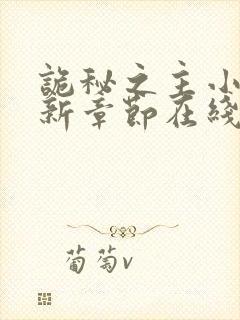 詭秘之主小
新章節在綫
葡萄v